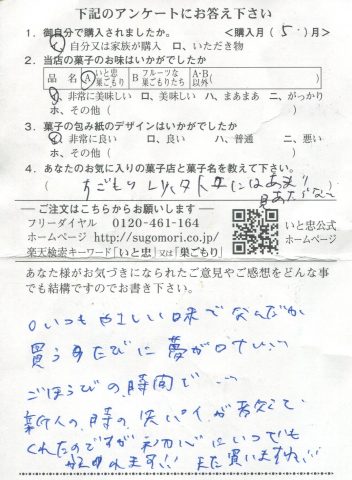 下記のアンケートにお答え下さい
1. 御自分で購入されましたか。 <購入月( 5 )月>
イ、自分又は家族が購入 ロ、いただき物
2. 当店の菓子のお味はいかがでしたか
品 名 A いと忠 巣ごもり B フルーツな 巣ごもりたち A・B 以外( )
イ、非常に美味しい ロ、美味しい ハ、まあまあ ニ、がっかり
ホ、その他( )
3. 菓子の包み紙のデザインはいかがでしたか
イ、非常に良い ロ、良い ハ、普通 ニ、悪い
ホ、その他( )
4. あなたのお気に入りの菓子店と菓子名を教えて下さい。
( すごもり にはあまり
ご注文はこちらからお願いします
フリーダイヤル 0120-461-164
ホームページ http://sugomori.co.jp/
楽天検索キーワード「いと忠」又は「巣ごもり」
いと忠公式
ホームページ
あなた様がお気づきになられたご意見やご感想をどんな事
でも結構ですのでお書き下さい。
いつもやさしい味でなんだか
買うたびに夢が
ごほうびの時間で…
新人の時の先パイが教えて
くれたのですが いつでも
ます!! また買いますね!!